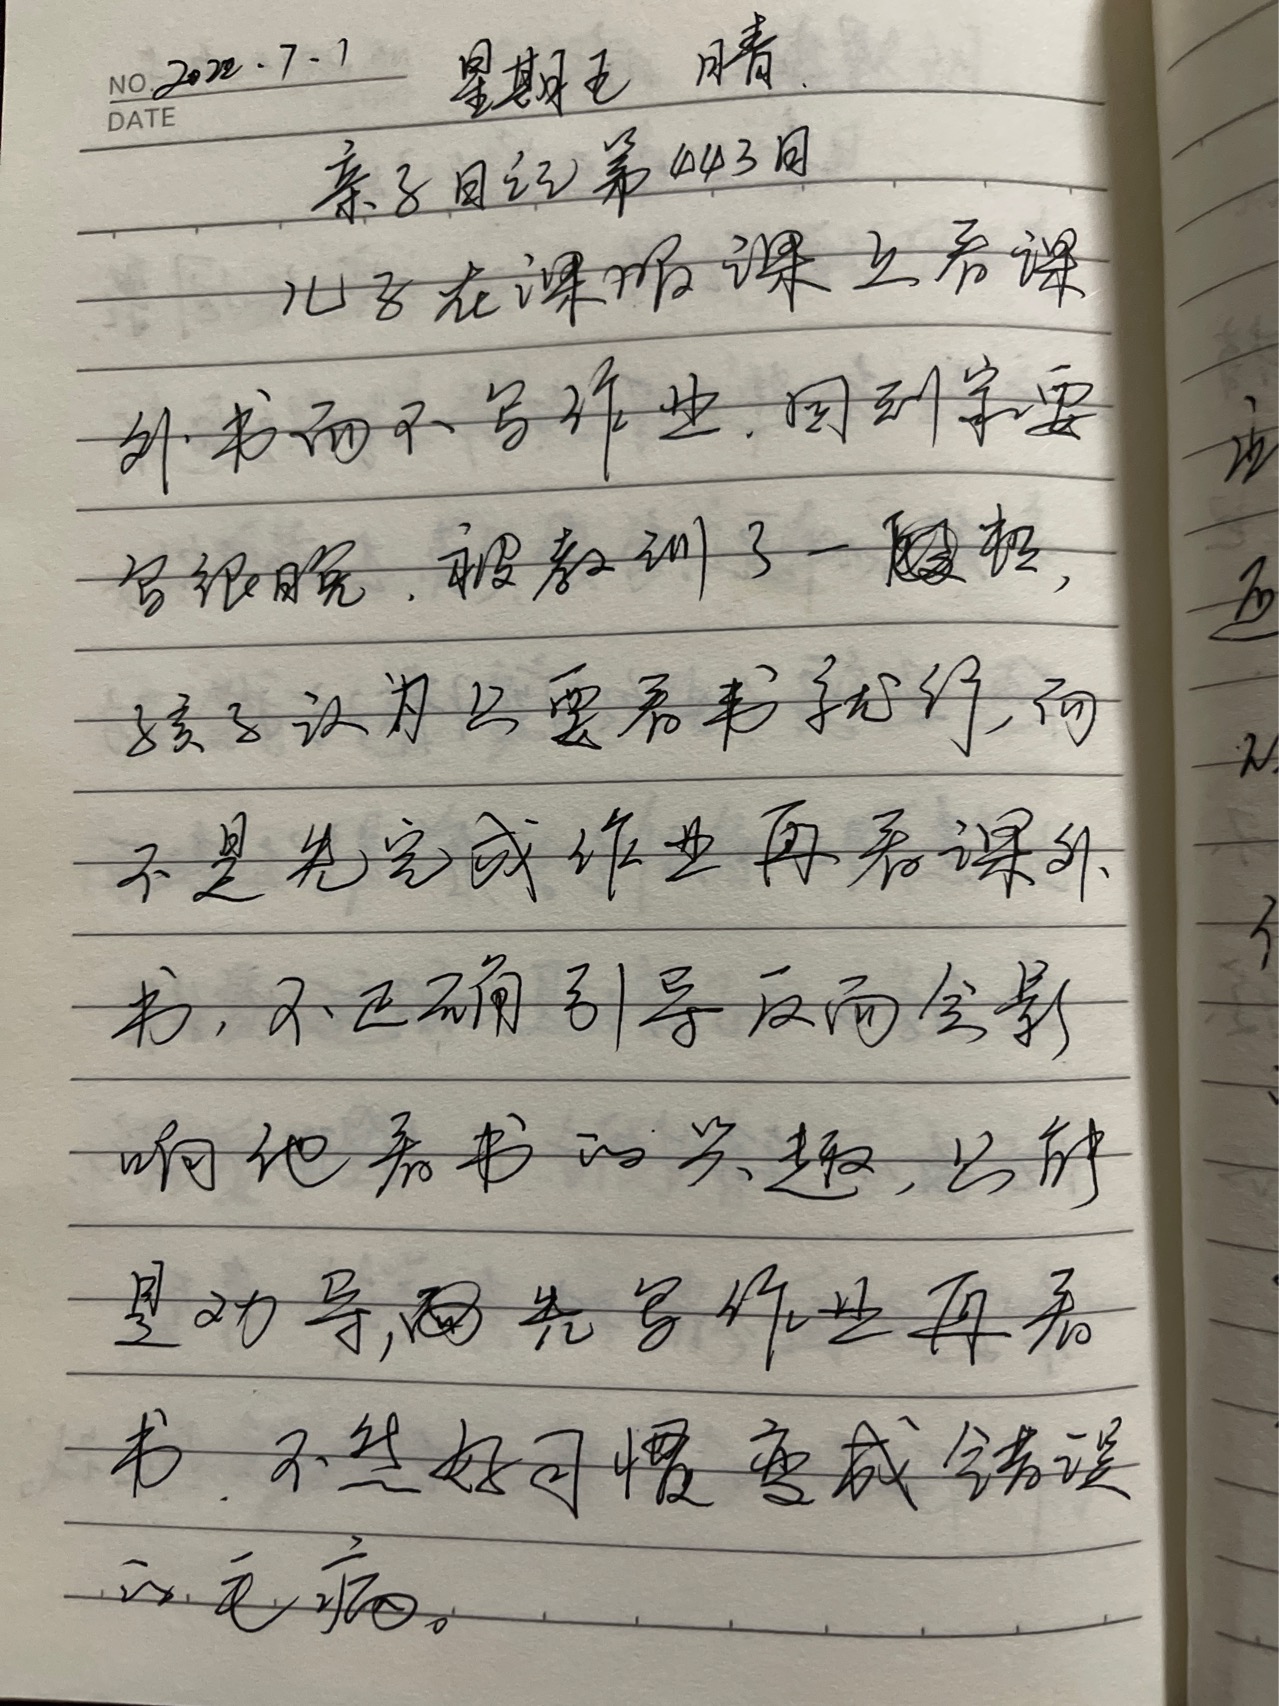 NO. 2022.7.1 星期五 晴.
DATE
亲子日记第443日
儿子在课服课上看课
外书而不写作业.回到家要
写很晚.被教训了一顿,
孩子认为只要看书就行,而
不是先完成作业再看课外
书,不正确引导反而会影
响他看书的兴趣,只能
是劝导,先写作业再看
书.不然好习惯变成错误
的毛病。